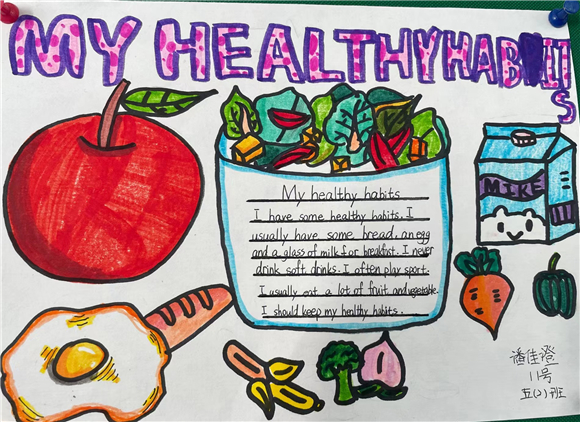 MY HEALTHY HABITS
My healthy habits
I have some healthy habits. I
usually have some bread, an egg
and a glass of milk for breakfast. I never
drink soft drinks. I often play sport.
I usually eat a lot of fruit and vegetable.
I should keep my healthy habits.
MIKE
潘佳澄
11号
五(2)班